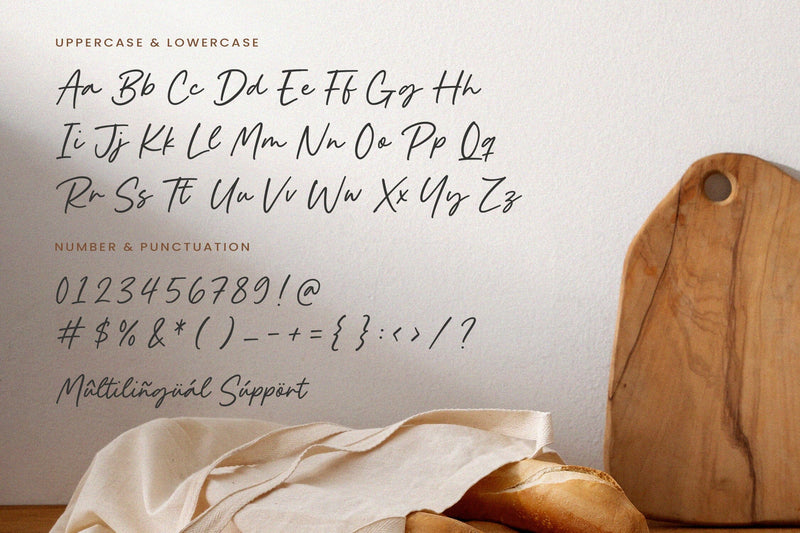 UPPERCASE & LOWERCASE
Aa Bb Cc Dd Ee Ff Gg Hh
Ii Jj Kk Ll Mm Nn Oo Pp Qq
Rr Ss Tt Uu Vv Ww Xx Yy Zz
NUMBER & PUNCTUATION
0123456789!@
#$%&*()_-+={}:<>/?
Mûltilińgüál Súppört